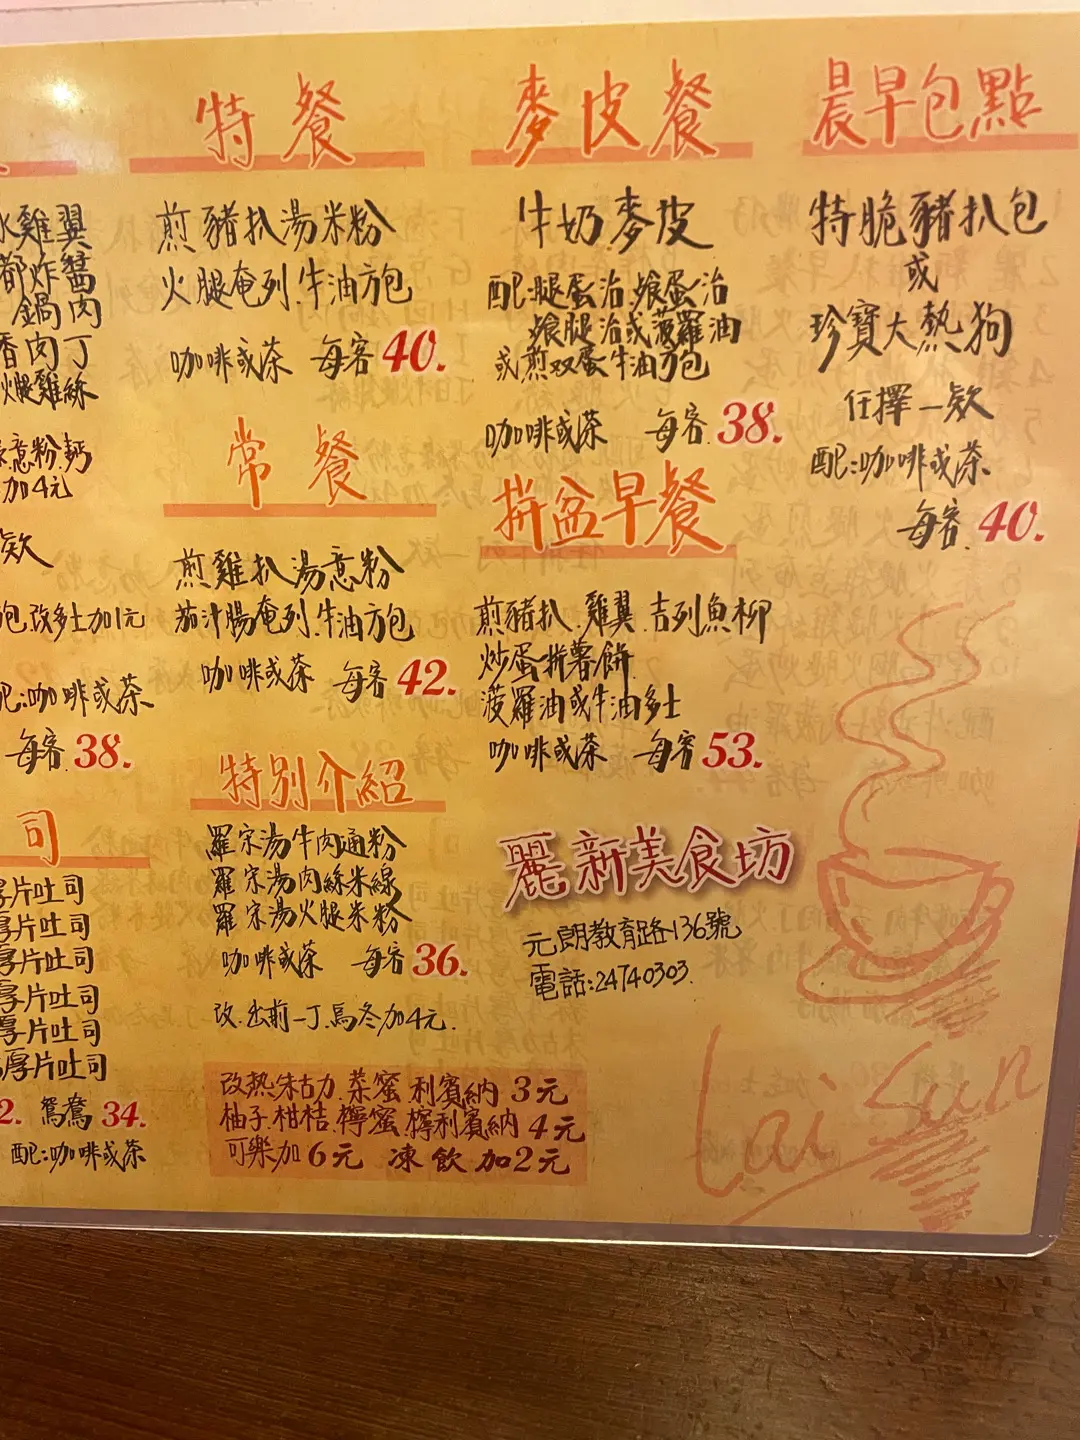 水雞翼
都炸醬
鍋肉
香肉丁
火腿雞絲
意粉.鈣
加4元
欵
包.改多士加1元
配:咖啡或茶
每客38.
司
厚片吐司
厚片吐司
厚片吐司
厚片吐司
厚片吐司
厚片吐司
2. 鴛鴦 34.
配:咖啡或茶
特餐
煎豬扒湯米粉
火腿奄列.牛油方包
咖啡或茶 每客40.
常餐
煎雞扒湯意粉
茄汁腸奄列.牛油方包
咖啡或茶 每客42.
特別介紹
羅宋湯牛肉通粉
羅宋湯肉絲米線
羅宋湯火腿米粉
咖啡或茶 每客36.
改.出前一丁.烏冬加4元.
改熱朱古力.菜蜜.利賓納 3元
柚子.柑桔.檸蜜.檸利賓納 4元
可樂加6元 凍飲加2元
麥皮餐
牛奶麥皮
配:腿蛋治.餐蛋治
餐腿治或菠蘿油
或煎双蛋牛油方包
咖啡或茶 每客.38.
拼盆早餐
煎豬扒.雞翼.吉列魚柳
炒蛋拼薯餅
菠蘿油或牛油多士
咖啡或茶 每客53.
麗新美食坊
元朗教育路136號
電話:24740303.
晨早包點
特脆豬扒包
或
珍寶大熱狗
任擇一欵
配:咖啡或茶
每客.40.
Lai Sun